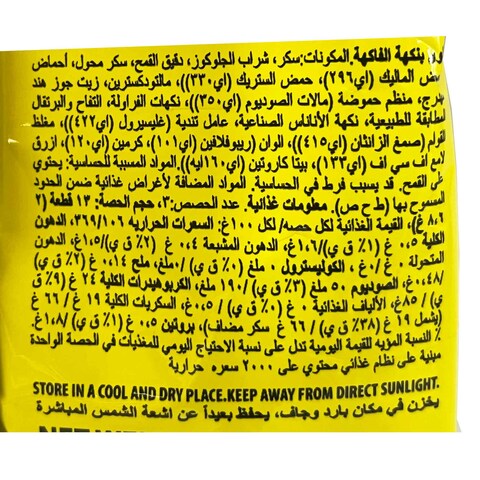 بنكهة الفاكهة. المكونات: سكر، شراب الجلوكوز، دقيق القمح، سكر محول، أحماض
الماليك (اي٢٩٦)، حمض الستريك (اي٣٣٠))، مالتودكسترين، زيت جوز هند
منظم حموضة (مالات الصوديوم (اي٣٥٠)، نكهات الفراولة، التفاح والبرتقال
المطابقة للطبيعية، نكهة الأناناس الصناعية، عامل تندية (غليسيرول (اي٤٢٢))، مغلظ
القوام (صمغ الزانثان (اي٤١٥))، الوان (ريبوفلافين (اي١٠١)، كرمين (اي١٢٠)، ازرق
لامع اف سي اف (اي١٣٣)، بيتا كاروتين (اي١٦٠ايه)). المواد المسببة للحساسية: يحتوي
على القمح. قد يسبب فرط في الحساسية. المواد المضافة لأغراض غذائية ضمن الحدود
المسموح بها (ط ح ص). معلومات غذائية. عدد الحصص:٣، حجم الحصة: ١٣ قطعة (٢
٨٫٦ غ)، القيمة الغذائية لكل حصه/ لكل ١٠٠غ: السعرات الحراريه ٣٦٩/١٠٦، الدهون
الكلية ٠٫٥ غ (١٪ ق ي)/١٫٦غ، الدهون المشبعة ٠٫٤ غ (٢٪ ق ي)/١٫٥غ، الدهون
المتحولة ٠ غ/٠غ، الكوليسترول ٠ ملغ (٠٪ ق ي)/٠ملغ، ملح ٠٫١٤غ (٢٪ ق ي)
/٠٫٤٨غ، الصوديوم ٥٠ ملغ (٣٪ ق ي)/١٩٠ ملغ، الكربوهيدرات الكلية ٢٤ غ (٩٪ ق
ي) /٨٥غ، الألياف الغذائية ٠ غ (٠٪ ق ي)/٠٫٥غ، السكريات الكلية ١٩ غ / ٦٦ غ
(يشمل ١٩ غ (٣٨٪ ق ي)/ ٦٦ غ سكر مضاف)، بروتين ٠٫٥ غ (١٪ ق ي)/١٫٨غ.
٪ النسبة المؤيه للقيمة اليومية تدل على نسبة الاحتياج اليومي للمغذيات في الحصة الواحدة
مبنية على نظام غذائي محتوي على ٢٠٠٠ سعره حرارية
STORE IN A COOL AND DRY PLACE.KEEP AWAY FROM DIRECT SUNLIGHT.
يخزن في مكان بارد وجاف، يحفظ بعيداً عن اشعة الشمس المباشرة